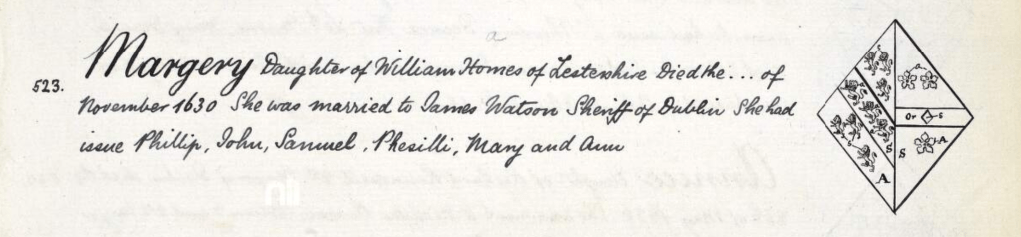 523. Margery Daughter of William Homes of Lestershire Died the ... of
November 1630 She was married to James Watson Sheriff of Dublin She had
issue Phillip, John, Samuel, Phesilli, Mary and Ann
Or S
S A
S
A